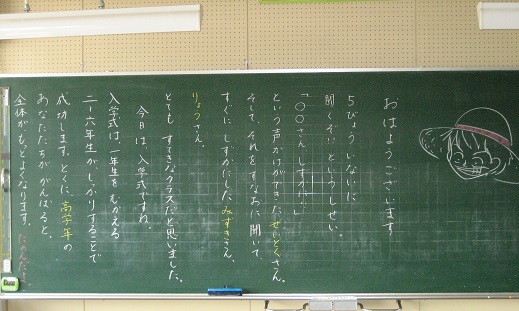 おはようございます
5びょういないに
聞くぞ!というしせい。
「○○さん、しずかに…」
という声かけができたせいとくさん。
そして、それをすなおに聞いて、
すぐにしずかにしたみずきさん、
りょうさん。
とてもすてきなクラスだと思いました。
今日は、入学式ですね。
入学式は一年生をむかえる
二〜六年生がしっかりすることで
成功します。とくに、高学年の
あなたたちががんばると、
全体がもっとよくなります。たのんだよ!